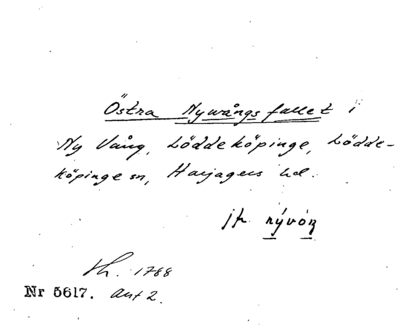 Östra Nywångsfallet i
Ny Vång, Löddeköpinge, Lödde-
köpinge sn, Harjagers hd.
jfr nývóŋ
Lh. 1788
Nr 5617. Akt 2.